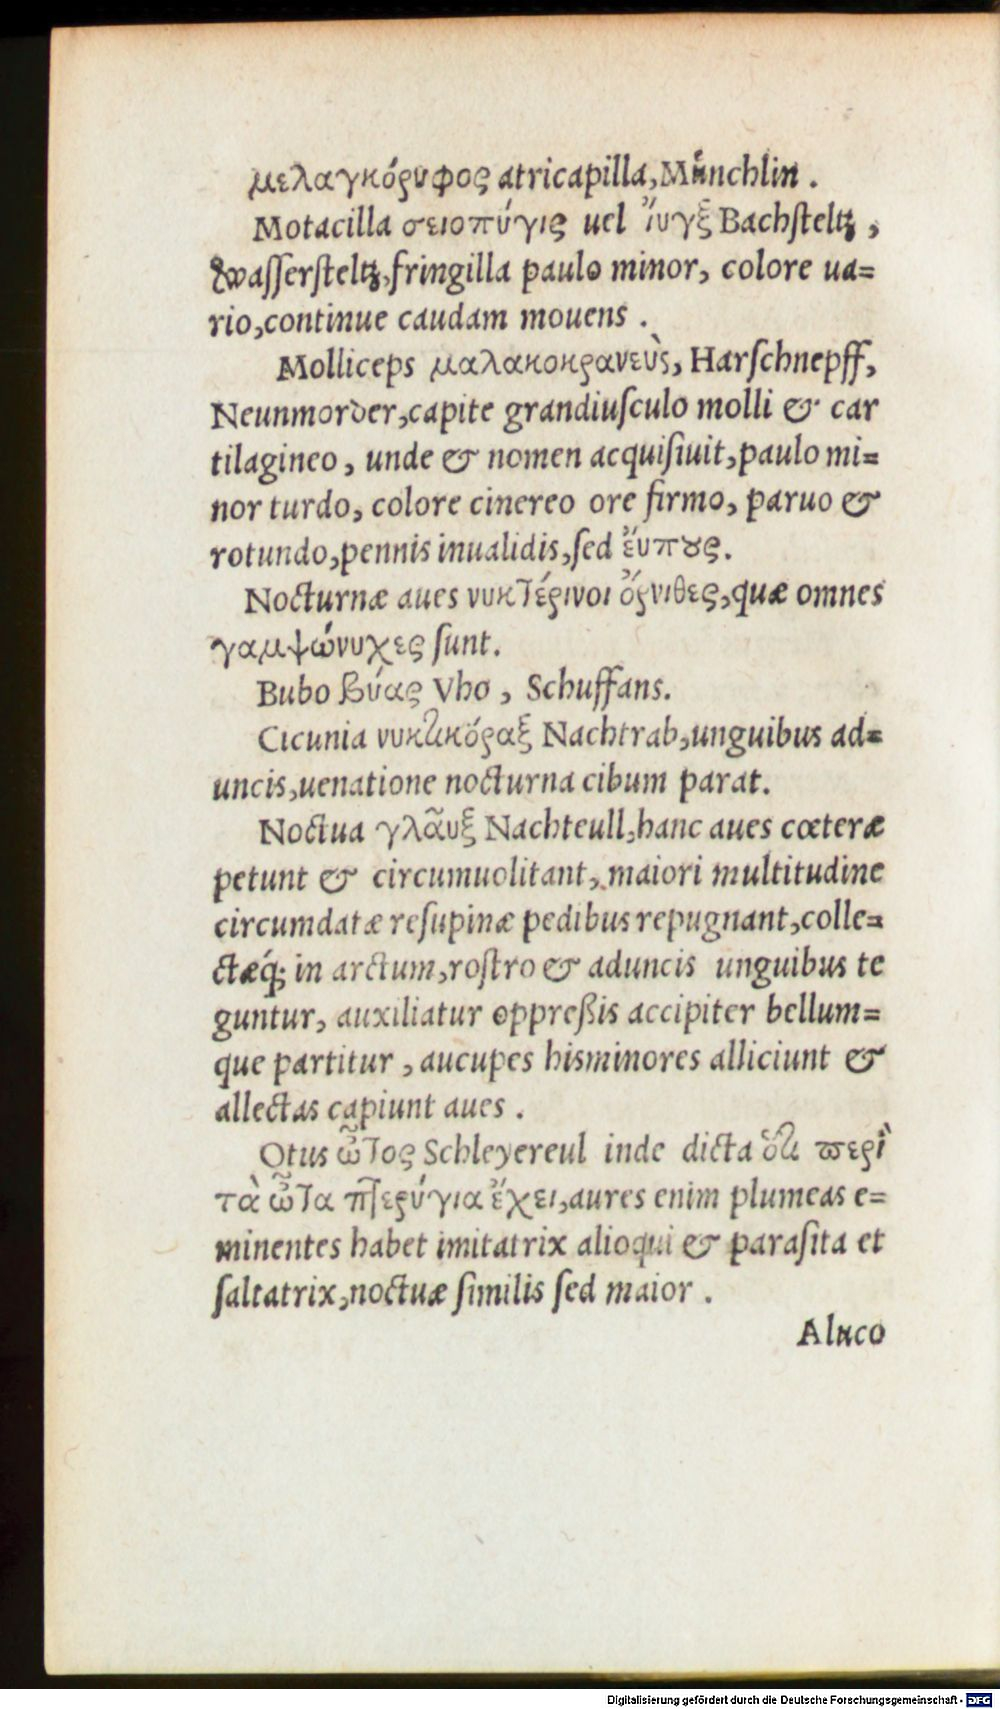 μελαγκόρυφος atricapilla, Münchlin .
Motacilla σειοπύγις uel ἴυγξ Bachſteltz ,
waſſerſteltz, fringilla paulo minor, colore ua=
rio, continue caudam mouens .
Molliceps μαλακοκρανεὺς, Harſchnepff,
Neunmorder, capite grandiuſculo molli & car
tilagineo, unde & nomen acquiſiuit, paulo mi=
nor turdo, colore cinereo ore firmo, paruo &
rotundo, pennis inualidis, ſed ἔυπους.
Nocturnæ aues νυκτέρινοι ὄρνιθες, quæ omnes
γαμψώνυχες ſunt.
Bubo βύας Vho , Schuffans.
Cicunia νυκτικόραξ Nachtrab, unguibus ad=
uncis, uenatione nocturna cibum parat.
Noctua γλᾶυξ Nachteull, hanc aues cœteræ
petunt & circumuolitant, maiori multitudine
circumdatæ reſupinæ pedibus repugnant, colle=
ctæq; in arctum, roſtro & aduncis unguibus te
guntur, auxiliatur oppreßis accipiter bellum=
que partitur , aucupes hisminores alliciunt &
allectas capiunt aues .
Otus ὦτος Schleyereul inde dicta ὅτι περὶ
τὰ ὦτα πτερύγια ἔχει, aures enim plumeas e=
minentes habet imitatrix alioqui & paraſita et
ſaltatrix, noctuæ ſimilis ſed maior .
Aluco
Digitalisierung gefördert durch die Deutsche Forschungsgemeinschaft - DFG